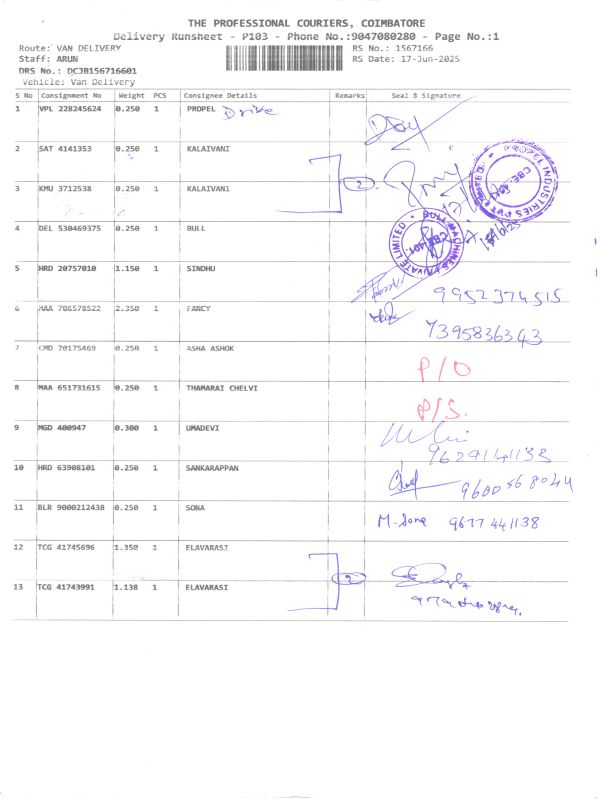 THE PROFESSIONAL COURIERS, COIMBATORE
Delivery Runsheet - P103 - Phone No.:9047080280 - Page No.:1
Route: VAN DELIVERY RS No.: 1567166
Staff: ARUN RS Date: 17-Jun-2025
DRS No.: DCJB156716601
Vehicle: Van Delivery
S No Consignment No Weight PCS Consignee Details Remarks Seal & Signature
1 VPL 228245624 0.250 1 PROPEL Drive
2 SAT 4141353 0.250 1 KALAIVANI
PROPEL INDUSTRIES PVT LIMITED
2
3 KMU 3712538 0.250 1 KALAIVANI
4 DEL 530469375 0.250 1 BULL
BULL MACHINES PRIVATE LIMITED CBE-401
5 HRD 20757010 1.150 1 SINDHU 9952374515
6 MAA 706578522 2.350 1 FANCY 7395836343
7 CMD 70175469 0.250 1 ASHA ASHOK P/O
8 MAA 651731615 0.250 1 THAMARAI CHELVI P/S.
9 MGD 400947 0.300 1 UMADEVI 9629141138
10 HRD 63908101 0.250 1 SANKARAPPAN 9600568044
11 BLR 9000212438 0.250 1 SONA M-Sona 9677441138
12 TCG 41745696 1.350 1 ELAVARASI
2
13 TCG 41743991 1.138 1 ELAVARASI